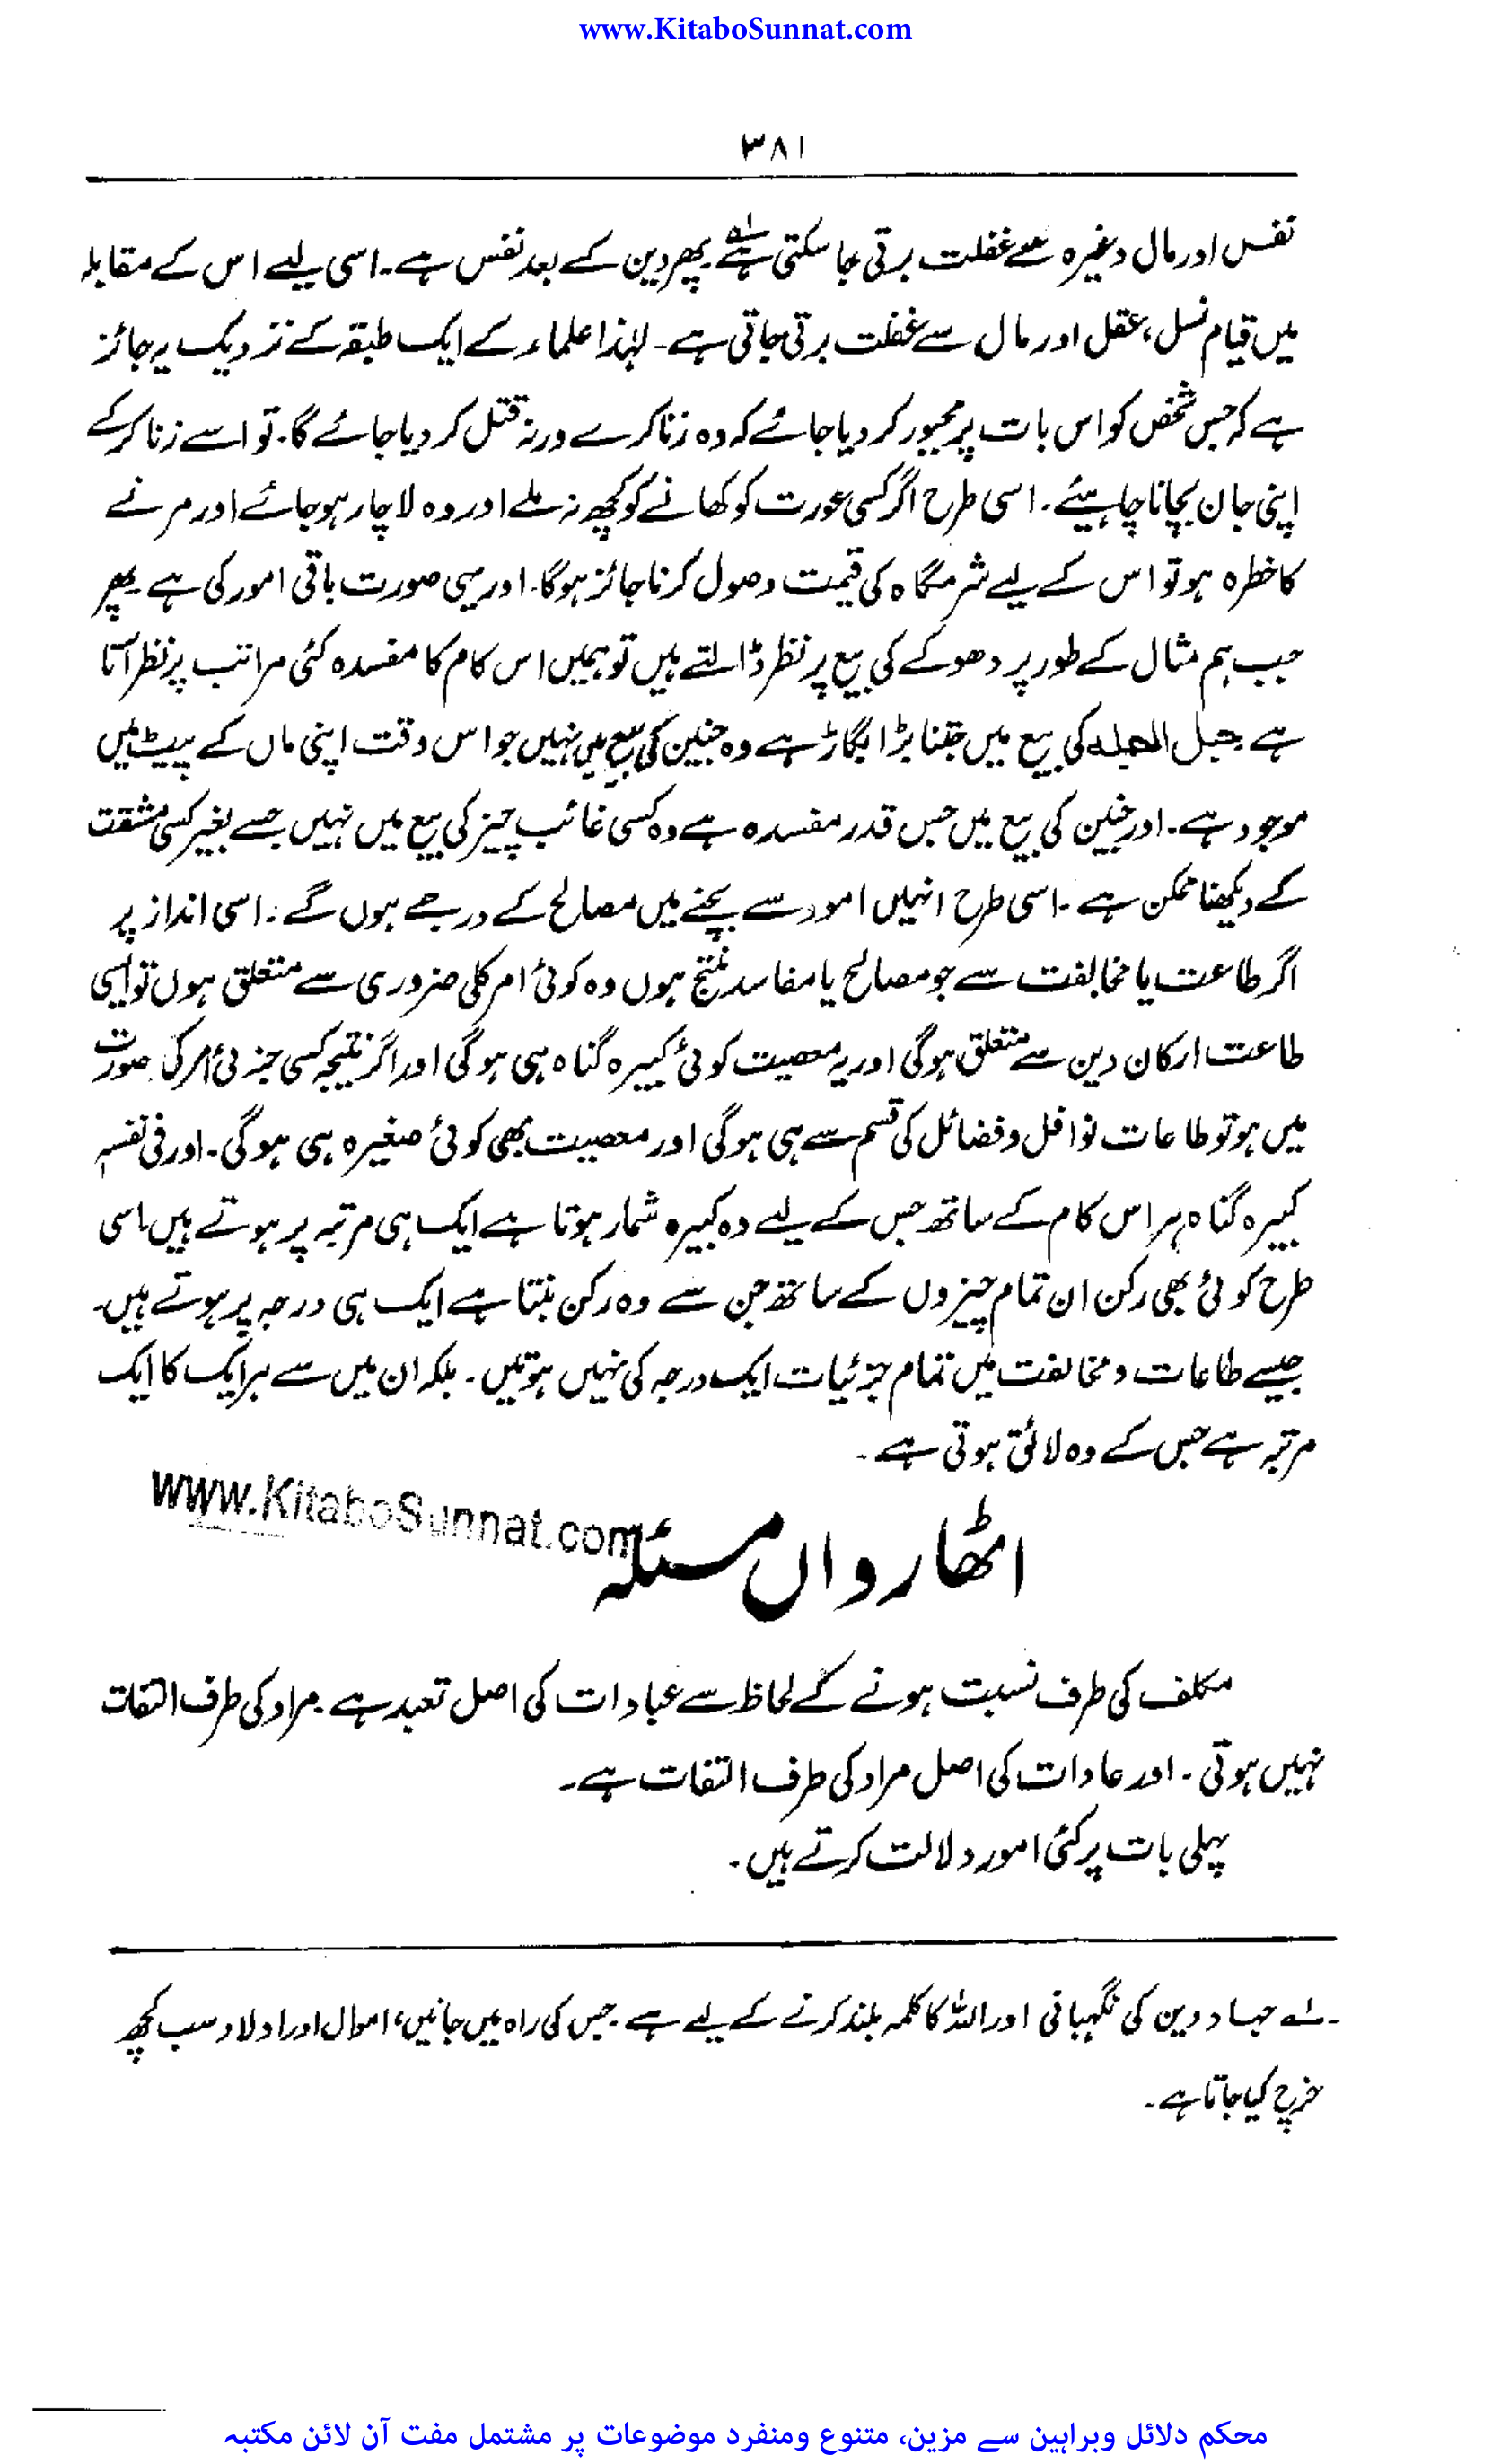 www.KitaboSunnat.com
۳۸۱
نفس اور مال وغیرہ سے غفلت برتی جا سکتی ہے۱ پھر دین کے بعد نفس ہے۔ اسی لیے اس کے مقابلہ
میں قیام نسل، عقل اور مال سے غفلت برتی جاتی ہے۔ لہٰذا علماء کے ایک طبقہ کے نزدیک یہ جائز
ہے کہ جس شخص کو اس بات پر مجبور کر دیا جائے کہ وہ زنا کرے ورنہ قتل کر دیا جائے گا۔ تو اسے زنا کر کے
اپنی جان بچانا چاہیئے۔ اسی طرح اگر کسی عورت کو کھانے کو کچھ نہ ملے اور وہ لاچار ہو جائے اور مرنے
کا خطرہ ہو تو اس کے لیے شرمگاہ کی قیمت وصول کرنا جائز ہوگا۔ اور یہی صورت باقی امور کی ہے۔ پھر
جب ہم مثال کے طور پر دھوکے کی بیع پر نظر ڈالتے ہیں تو ہمیں اس کام کا مفسدہ کئی مراتب پر نظر آتا
ہے۔ حبل الحبلہ کی بیع میں جتنا بڑا بگاڑ ہے وہ جنین کی بیع میں نہیں جو اس وقت اپنی ماں کے پیٹ میں
موجود ہے۔ اور جنین کی بیع میں جس قدر مفسدہ ہے وہ کسی غائب چیز کی بیع میں نہیں جسے بغیر کسی مشقت
کے دیکھنا ممکن ہے۔ اسی طرح انہیں امور سے بچنے میں مصالح کے درجے ہوں گے۔ اسی انداز پر
اگر طاعت یا مخالفت سے جو مصالح یا مفاسد منتج ہوں وہ کوئی امر کلی ضروری سے متعلق ہوں تو ایسی
طاعت ارکان دین سے متعلق ہوگی اور یہ معصیت کوئی کبیرہ گناہ ہی ہوگی اور اگر نتیجہ کسی جزئی امر کی صورت
میں ہو تو طاعات نوافل و فضائل کی قسم سے ہی ہوگی اور معصیت بھی کوئی صغیرہ ہی ہوگی۔ اور فی نفسہٖ
کبیرہ گناہ ہر اس کام کے ساتھ جس کے لیے وہ کبیرہ شمار ہوتا ہے ایک ہی مرتبہ پر ہوتے ہیں۔ اسی
طرح کوئی بھی رکن ان تمام چیزوں کے ساتھ جن سے وہ رکن بنتا ہے ایک ہی درجہ پر ہوتے ہیں۔
جیسے طاعات و مخالفت میں تمام جزئیات ایک درجہ کی نہیں ہوتیں۔ بلکہ ان میں سے ہر ایک کا ایک
مرتبہ ہے جس کے وہ لائق ہوتی ہے۔
www.KitaboSunnat.com
اٹھارواں مسئلہ
مکلف کی طرف نسبت ہونے کے لحاظ سے عبادات کی اصل تعبد ہے۔ مراد کی طرف التفات
نہیں ہوتی۔ اور عادات کی اصل مراد کی طرف التفات ہے۔
پہلی بات پر کئی امور دلالت کرتے ہیں۔
۱ جہاد دین کی نگہبانی اور اللہ کا کلمہ بلند کرنے کے لیے ہے۔ جس کی راہ میں جانیں، اموال اور اولاد سب کچھ
خرچ کیا جاتا ہے۔
محکم دلائل وبراہین سے مزین، متنوع ومنفرد موضوعات پر مشتمل مفت آن لائن مکتبہ